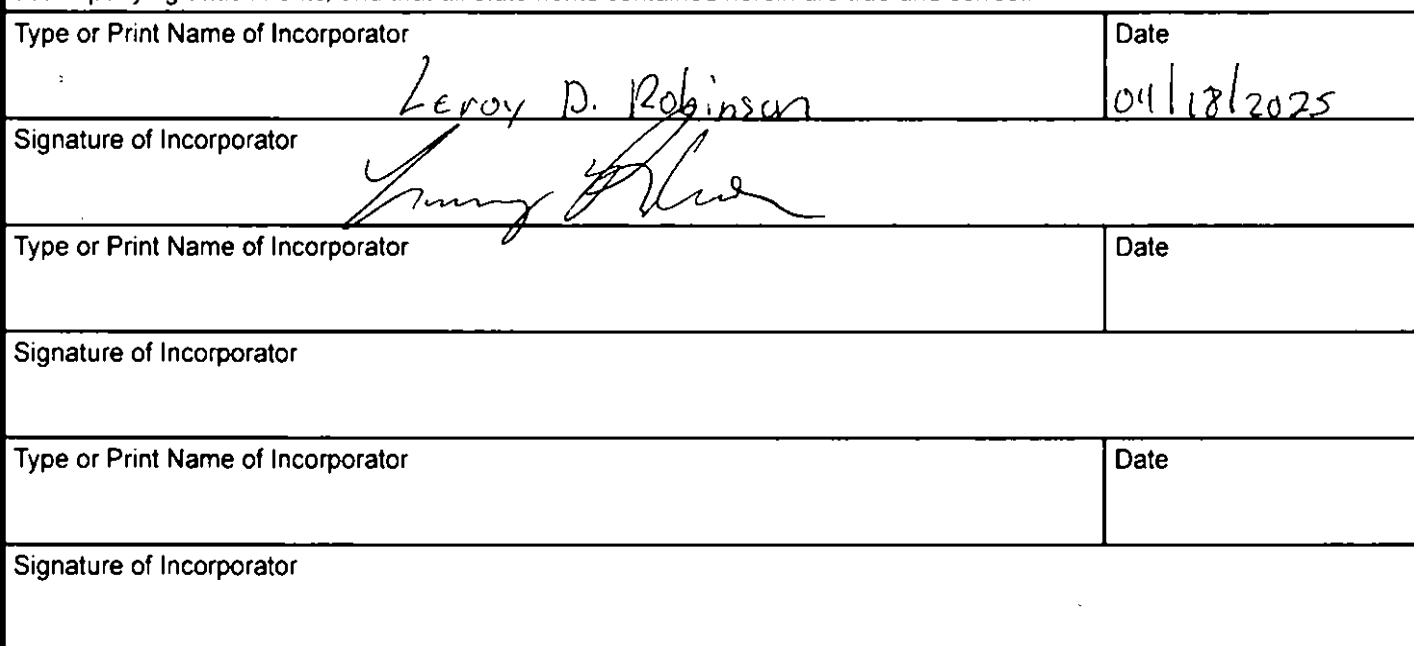 Type or Print Name of Incorporator
Date
Leroy D. Robinson
04/18/2025
Signature of Incorporator
Type or Print Name of Incorporator
Date
Signature of Incorporator
Type or Print Name of Incorporator
Date
Signature of Incorporator